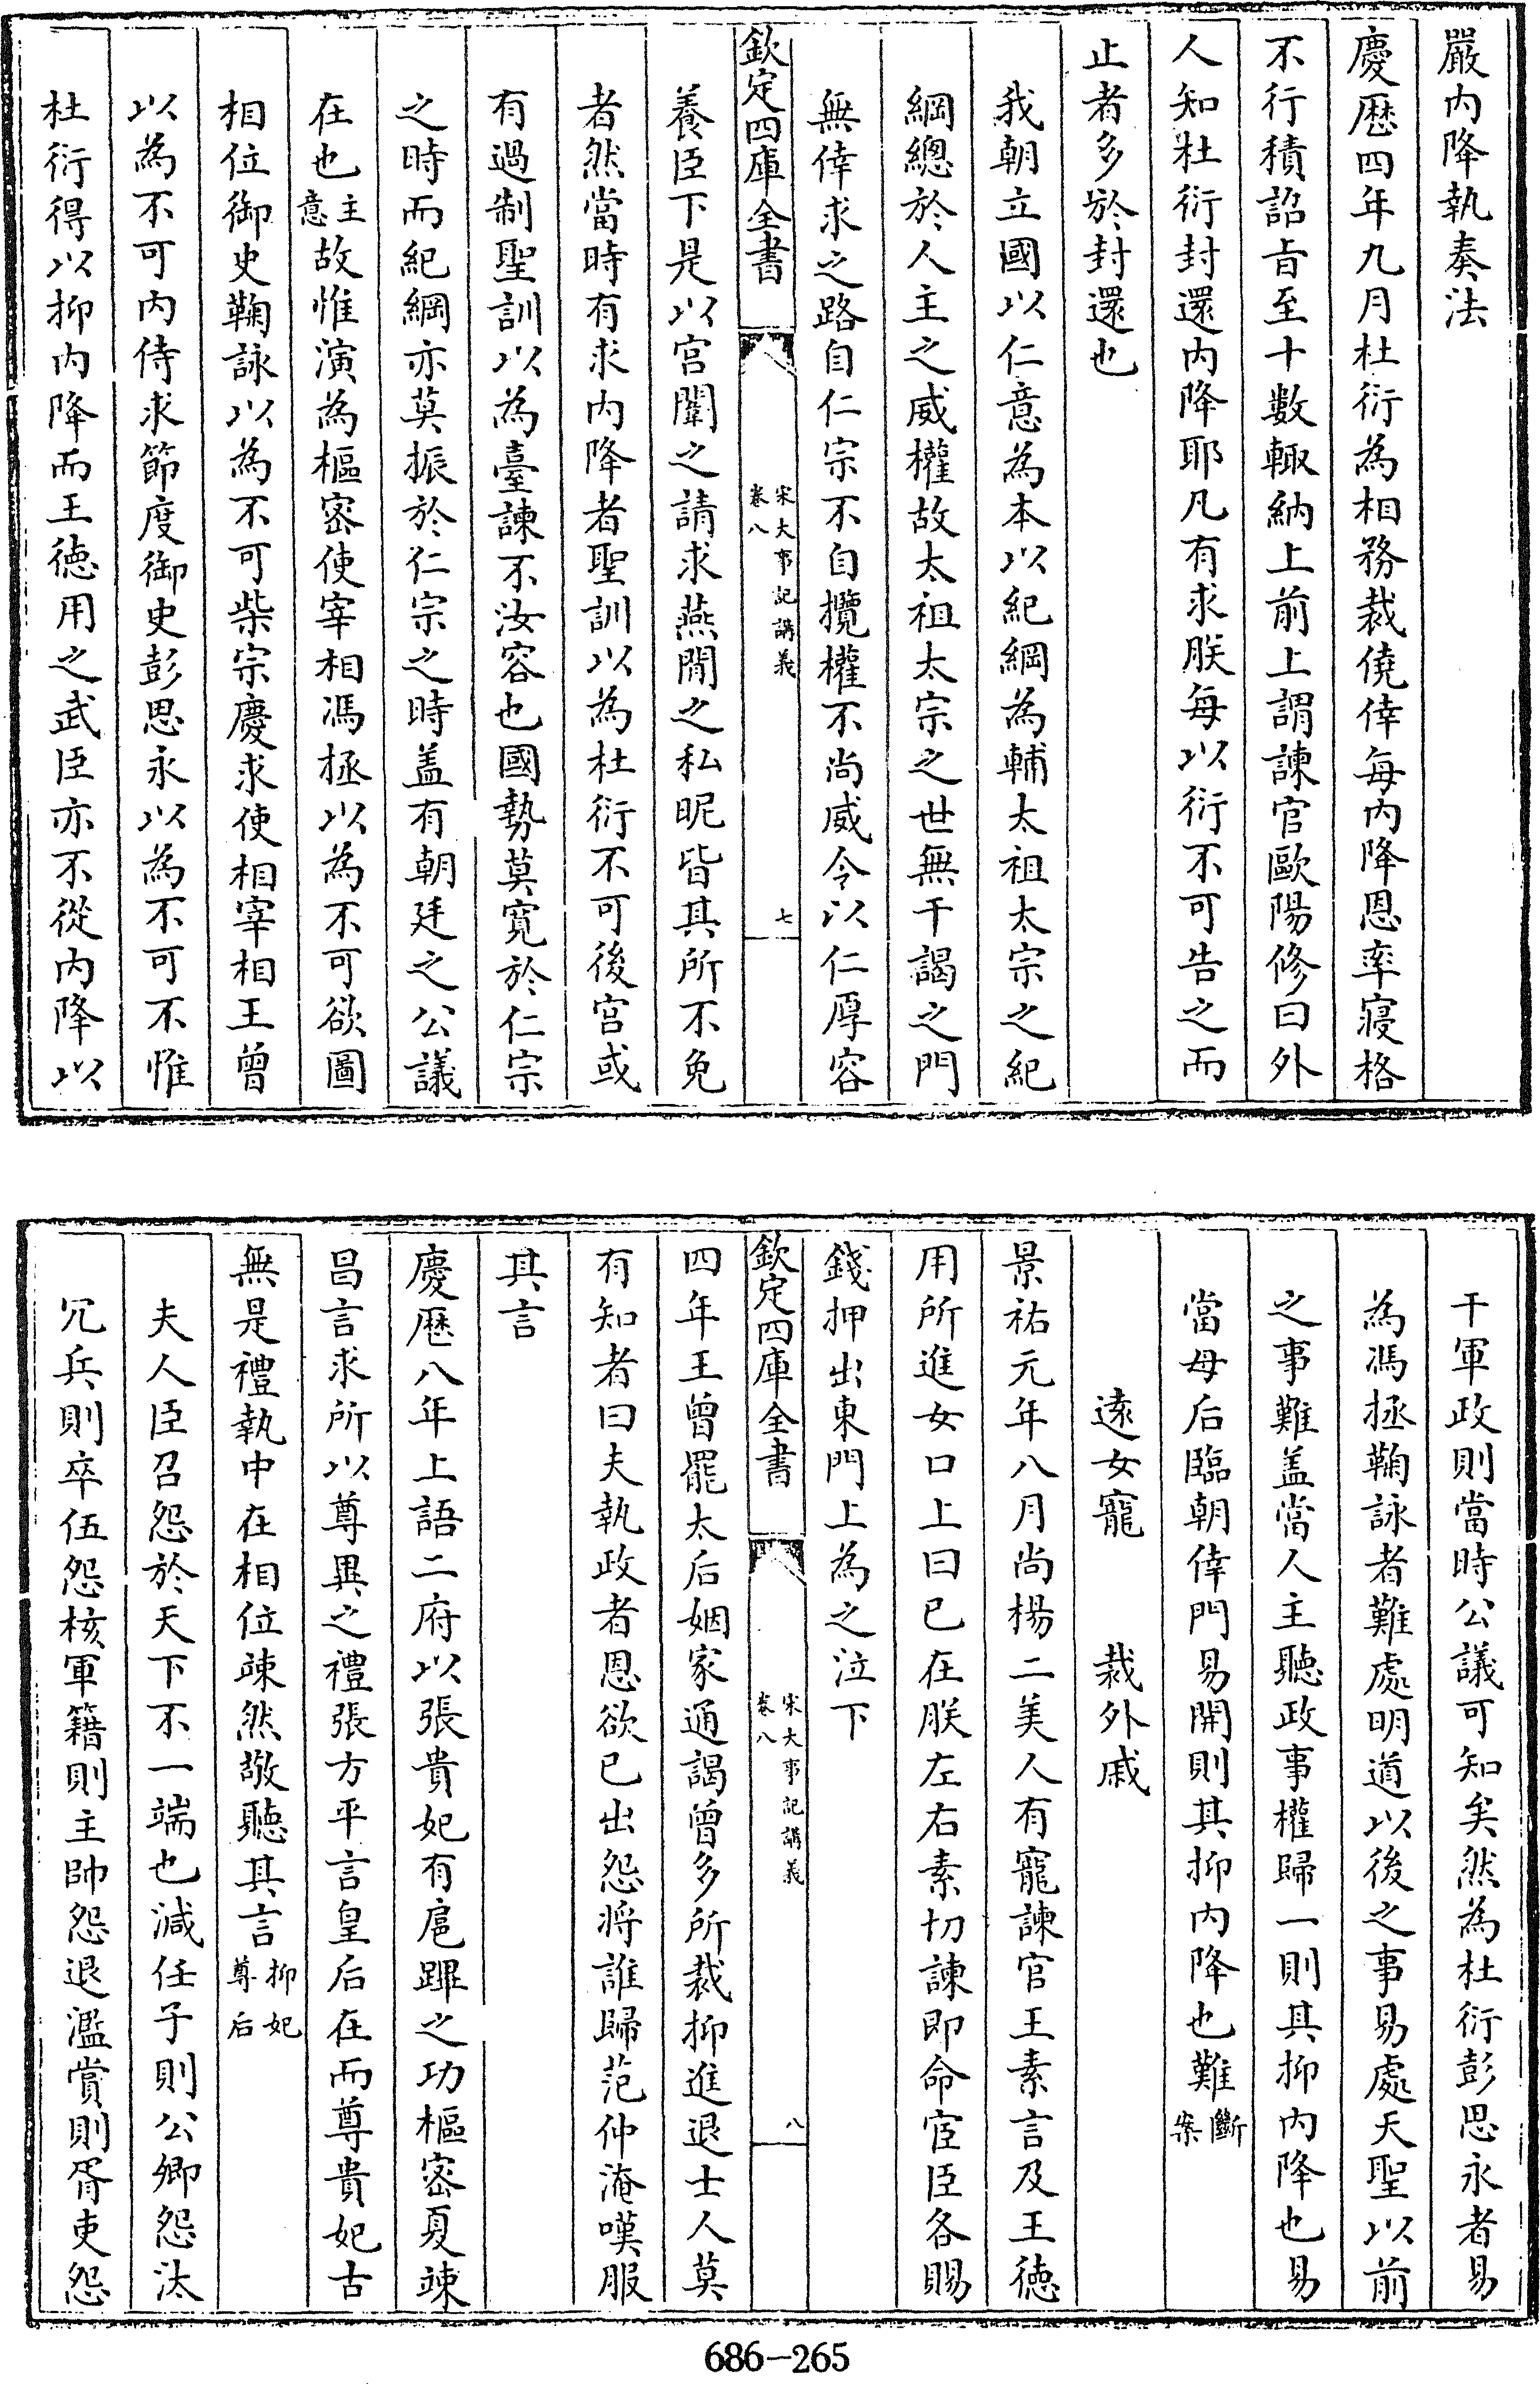 嚴内降執奏法
慶歴四年九月杜衍為相務裁僥倖每内降恩率寢格
不行積詔旨至十數輙納上前上謂諫官歐陽修曰外
人知杜衍封還内降耶凡有求朕每以衍不可告之而
止者多於封還也
我朝立國以仁意為本以紀綱為輔太祖太宗之紀
綱總於人主之威權故太祖太宗之世無干謁之門
無倖求之路自仁宗不自攬權不尚威令以仁厚容
欽定四庫全書
宋大事記講義
卷八
七
養臣下是以宮闈之請求燕閒之私昵皆其所不免
者然當時有求内降者聖訓以為杜衍不可後宮或
有過制聖訓以為臺諫不汝容也國勢莫寛於仁宗
之時而紀綱亦莫振於仁宗之時盖有朝廷之公議
在也主意故惟演為樞密使宰相馮拯以為不可欲圖
相位御史鞠詠以為不可柴宗慶求使相宰相王曾
以為不可内侍求節度御史彭思永以為不可不惟
杜衍得以抑内降而王徳用之武臣亦不從内降以
干軍政則當時公議可知矣然為杜衍彭思永者易
為馮拯鞠詠者難處明道以後之事易處天聖以前
之事難盖當人主聽政事權歸一則其抑内降也易
當母后臨朝倖門易開則其抑内降也難斷案
逺女寵　裁外戚
景祐元年八月尚楊二美人有寵諫官王素言及王徳
用所進女口上曰已在朕左右素切諫即命宦臣各賜
錢押出東門上為之泣下
欽定四庫全書
宋大事記講義
卷八
八
四年王曾罷太后姻家通謁曾多所裁抑進退士人莫
有知者曰夫執政者恩欲已出怨將誰歸范仲淹嘆服
其言
慶歴八年上語二府以張貴妃有扈蹕之功樞密夏竦
昌言求所以尊異之禮張方平言皇后在而尊貴妃古
無是禮執中在相位竦然敬聽其言抑妃尊后
夫人臣召怨於天下不一端也減任子則公卿怨汰
冗兵則卒伍怨核軍籍則主帥怨退濫賞則胥吏怨
686-265